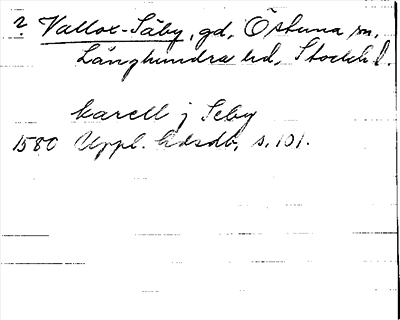 ? Vallox-Säby, gd, Östuna sn,
Långhundra hd, Stockh. l.
karell j Seby
1580 Uppl. hdsdb, s. 101.